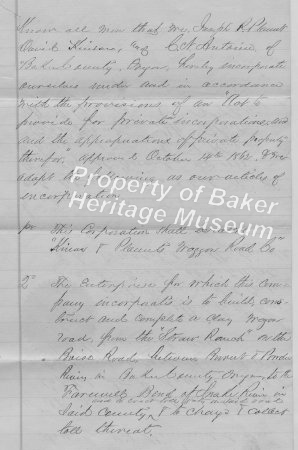 Know all men that we, Joseph R. Plummt
David Kinear, and C N Antoine, of
Baker County, Oregon, hereby incorporate
ourselves under and in accordance
with the provisions of an "Act to
provide for private incorporations, and
and the appropriations of private property
therefor, approved October 14th 1862, & we
adopt the following as our articles of
incorporation
Property of Baker
Heritage Museum
1st This Corporation shall be
& Waggon Road Co"
2d The enterprise for which this com-
pany incorporates is to build, cons-
truct and complete a Clay Waggon
road, from the "Straw Ranch" on the
Boise Road, between Burnt & Powder
River in Baker County Oregon, to the
Farewell Bend of Snake River in
said County, & to charge & collect
toll thereat.